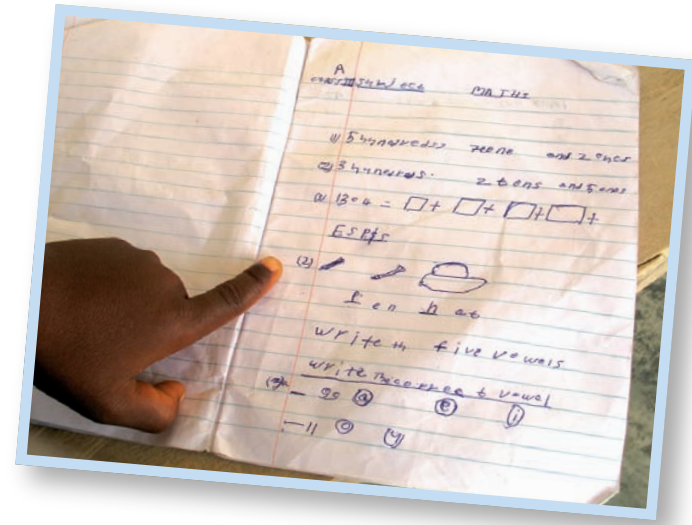 A
MATHS
1) 5 hundreds zeno and 2 ones
2) 3 hundreds. 2 tens and 5 ones
a) 1304 = □ + □ + □ + □ +
(2)
P en h at
write th five vowels
write the correct vowel
(3) — gg ⓐ ⓔ ⓘ
— 11 ⓞ (u)